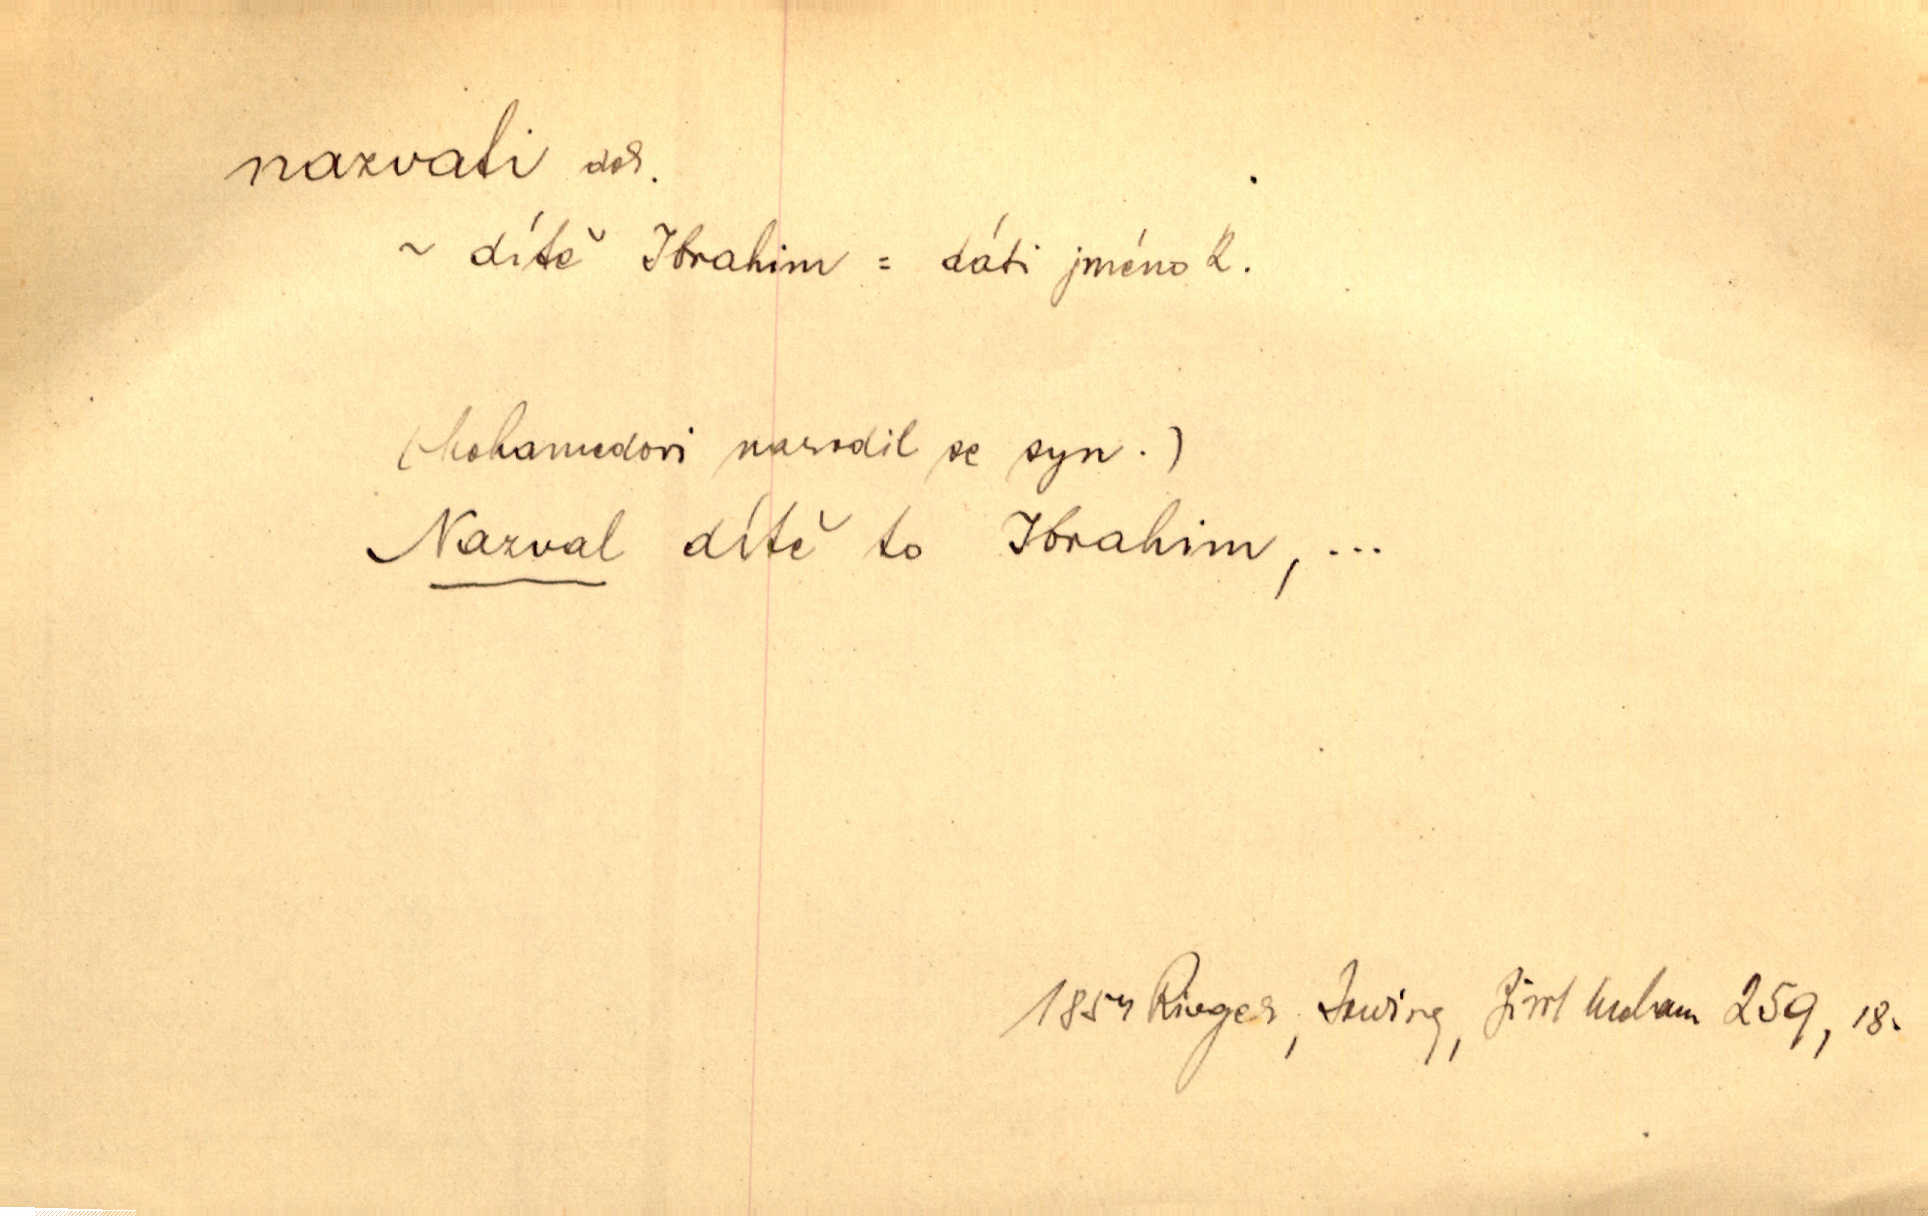 nazvati dok.
~ dítě Ibrahim = dáti jméno I.
(Mohamedovi narodil se syn.)
Nazval dítě to Ibrahim, ...
1854 Rieger, Irwing, Živt Moham 259, 18.